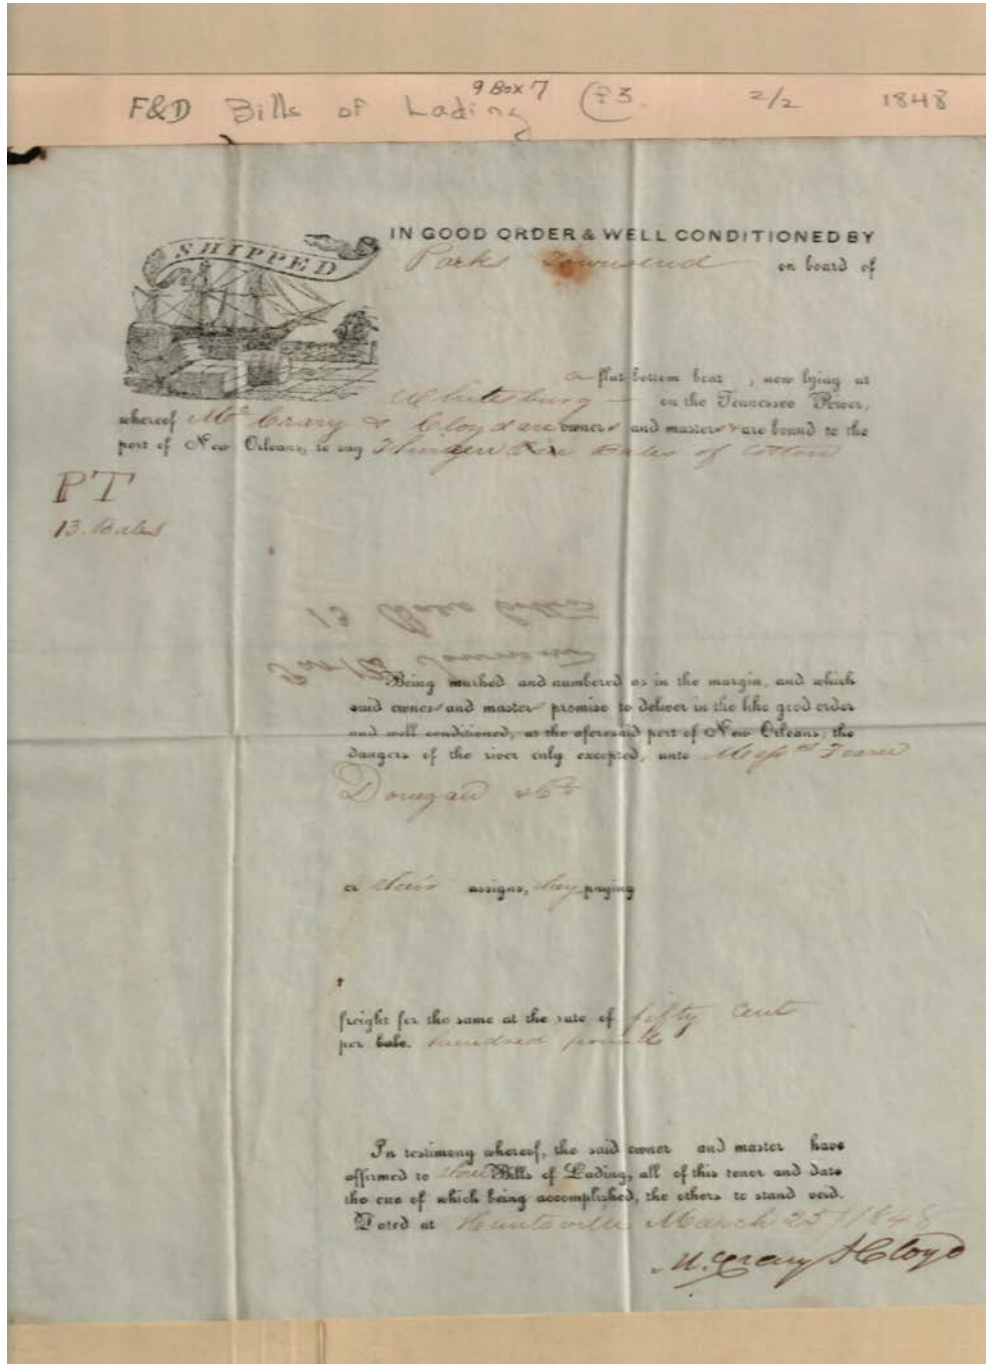 9 Box 7
F&D Bills of Lading F3. 2/2 1848
SHIPPED
IN GOOD ORDER & WELL CONDITIONED BY
Parks Townsend on board of
a flat bottom boat, now lying at
Whitesburg on the Tennessee River,
whereof McCrary & Cloyd are owners and masters are bound to the
port of New Orleans, to say Thirteen Bales of Cotton
PT
13. Bales
13 Bales Cotton
Parks Townsend
Being marked and numbered as in the margin, and which
said owner and master promise to deliver in the like good order
and well conditioned, at the aforesaid port of New Orleans, the
dangers of the river only excepted, unto Messrs
Donegan & Co
or their assigns, they paying
freight for the same at the rate of fifty cent
per bale. hundred pounds
In testimony whereof, the said owner and master have
affirmed to Bills of Lading, all of this tenor and date
the one of which being accomplished, the others to stand void.
Dated at Huntsville March 25 1848
McCrary & Cloyd